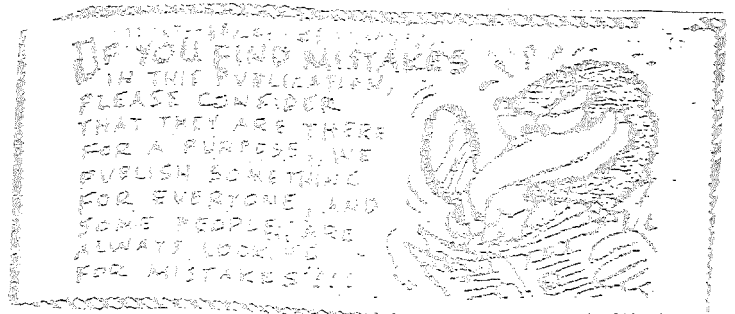 IF YOU FIND MISTAKES
IN THIS PUBLICATION,
PLEASE CONSIDER
THAT THEY ARE THERE
FOR A PURPOSE. WE
PUBLISH SOMETHING
FOR EVERYONE, AND
SOME PEOPLE ARE
ALWAYS LOOKING
FOR MISTAKES!!!